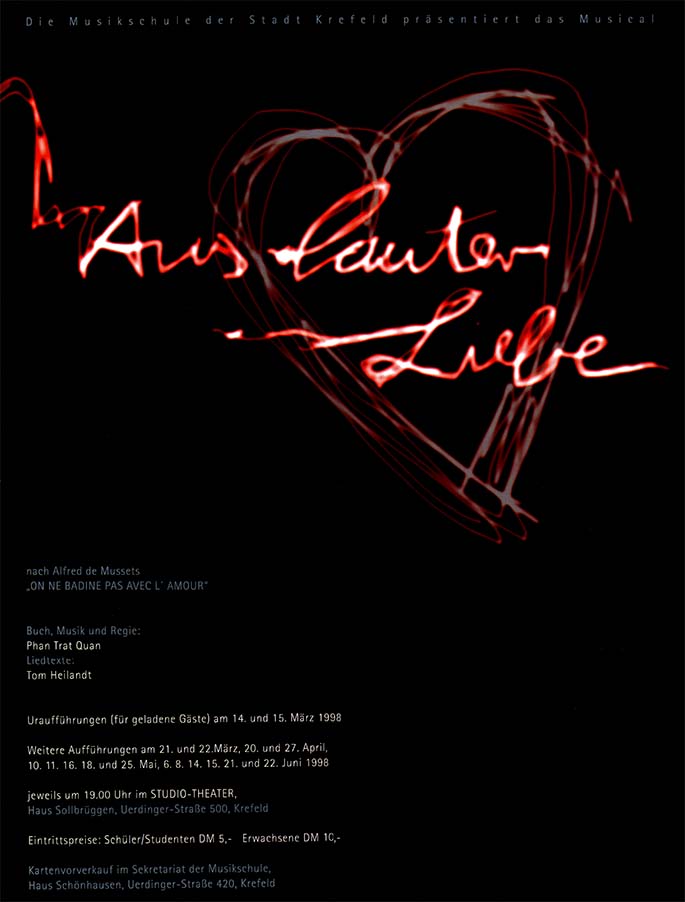 Die Musikschule der Stadt Krefeld präsentiert das Musical
Aus lauter
Liebe
nach Alfred de Mussets
„ON NE BADINE PAS AVEC L' AMOUR"
Buch, Musik und Regie:
Phan Trat Quan
Liedtexte:
Tom Heilandt
Uraufführungen (für geladene Gäste) am 14. und 15. März 1998
Weitere Aufführungen am 21. und 22.März, 20. und 27. April,
10. 11. 16. 18. und 25. Mai, 6. 8. 14. 15. 21. und 22. Juni 1998
jeweils um 19.00 Uhr im STUDIO-THEATER,
Haus Sollbrüggen, Uerdinger-Straße 500, Krefeld
Eintrittspreise: Schüler/Studenten DM 5,- Erwachsene DM 10,-
Kartenvorverkauf im Sekretariat der Musikschule,
Haus Schönhausen, Uerdinger-Straße 420, Krefeld